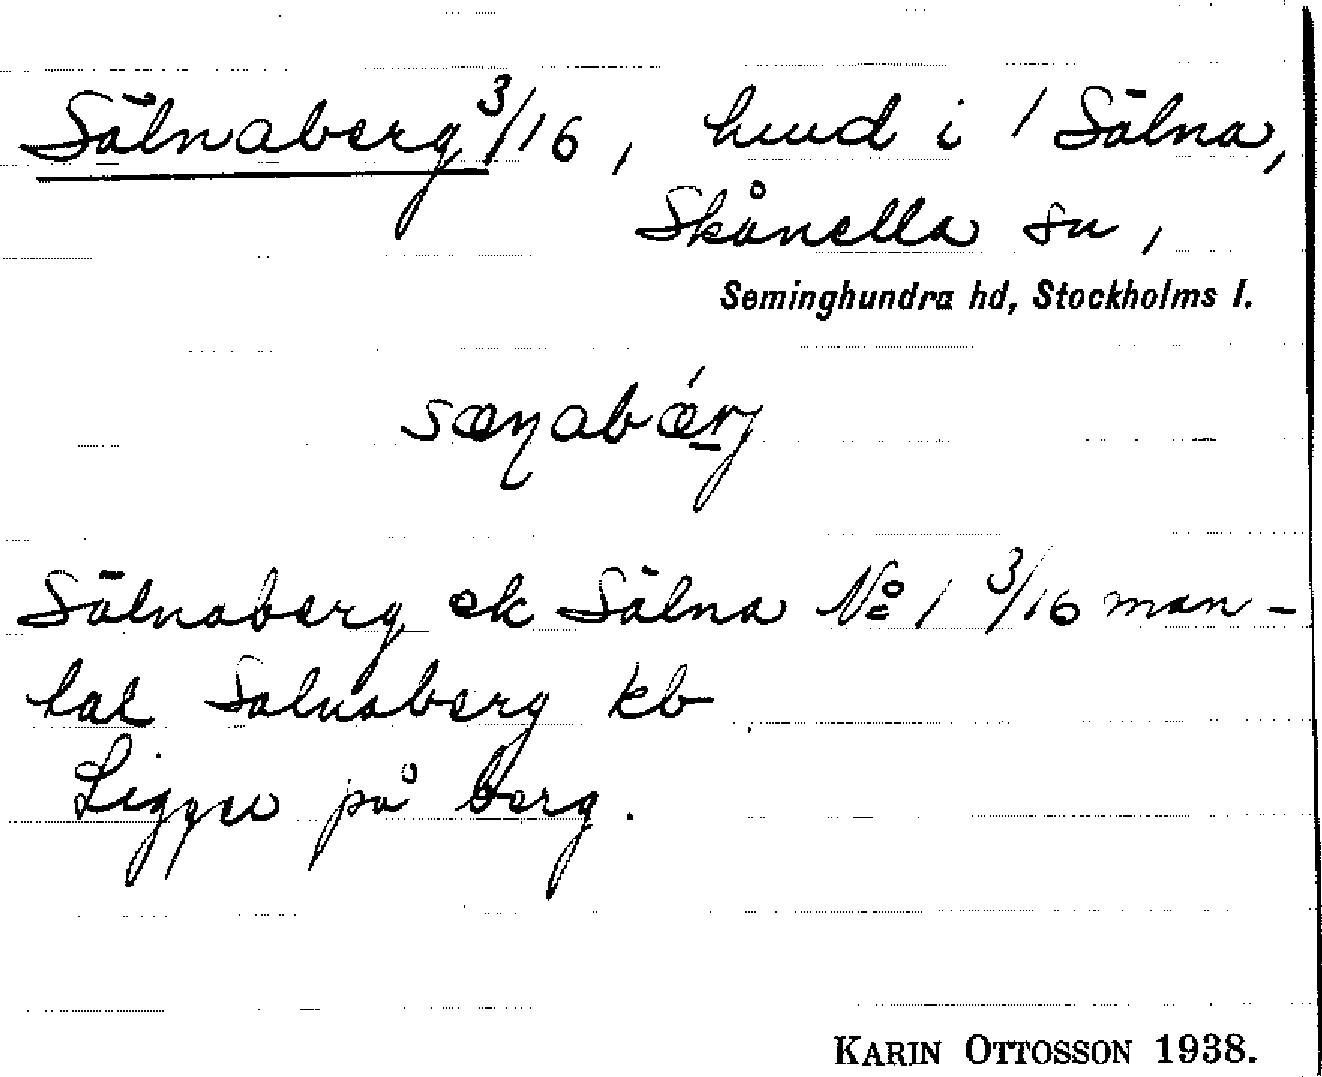 Sälnaberg 3/16, hmd i 1 Sälna,
Skånella sn,
Seminghundra hd, Stockholms l.
sæɳabǽrj
Sälnaberg ek Sälna No 1 3/16 man-
tal Salnaberg kb
Ligger på berg.
KARIN OTTOSSON 1938.